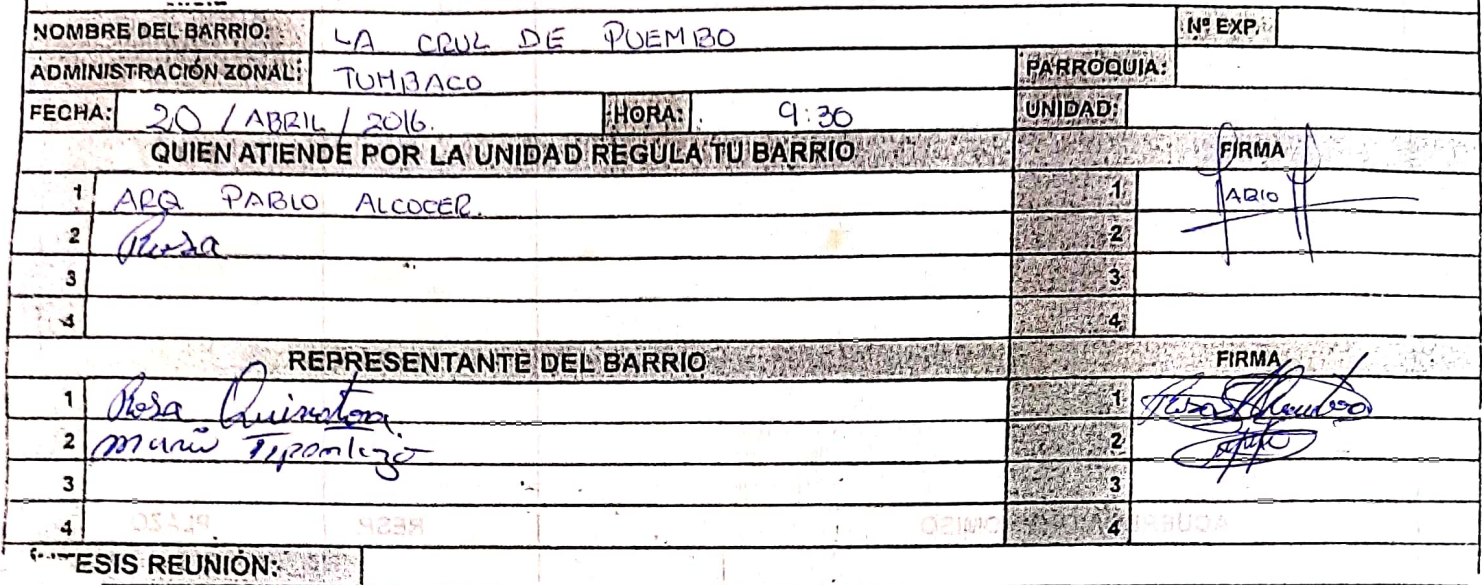 NOMBRE DEL BARRIO: LA CRUZ DE PUEMBO Nº EXP.
ADMINISTRACIÓN ZONAL: TUMBACO PARROQUIA:
FECHA: 20 / ABRIL / 2016. HORA: 9:30 UNIDAD:
QUIEN ATIENDE POR LA UNIDAD REGULA TU BARRIO FIRMA
1 ARQ PABLO ALCOCER. 1
2 Rosa 2
3 3
4 4
REPRESENTANTE DEL BARRIO FIRMA
1 Rosa 1
2 2
3 3
4 4
ESIS REUNIÓN: